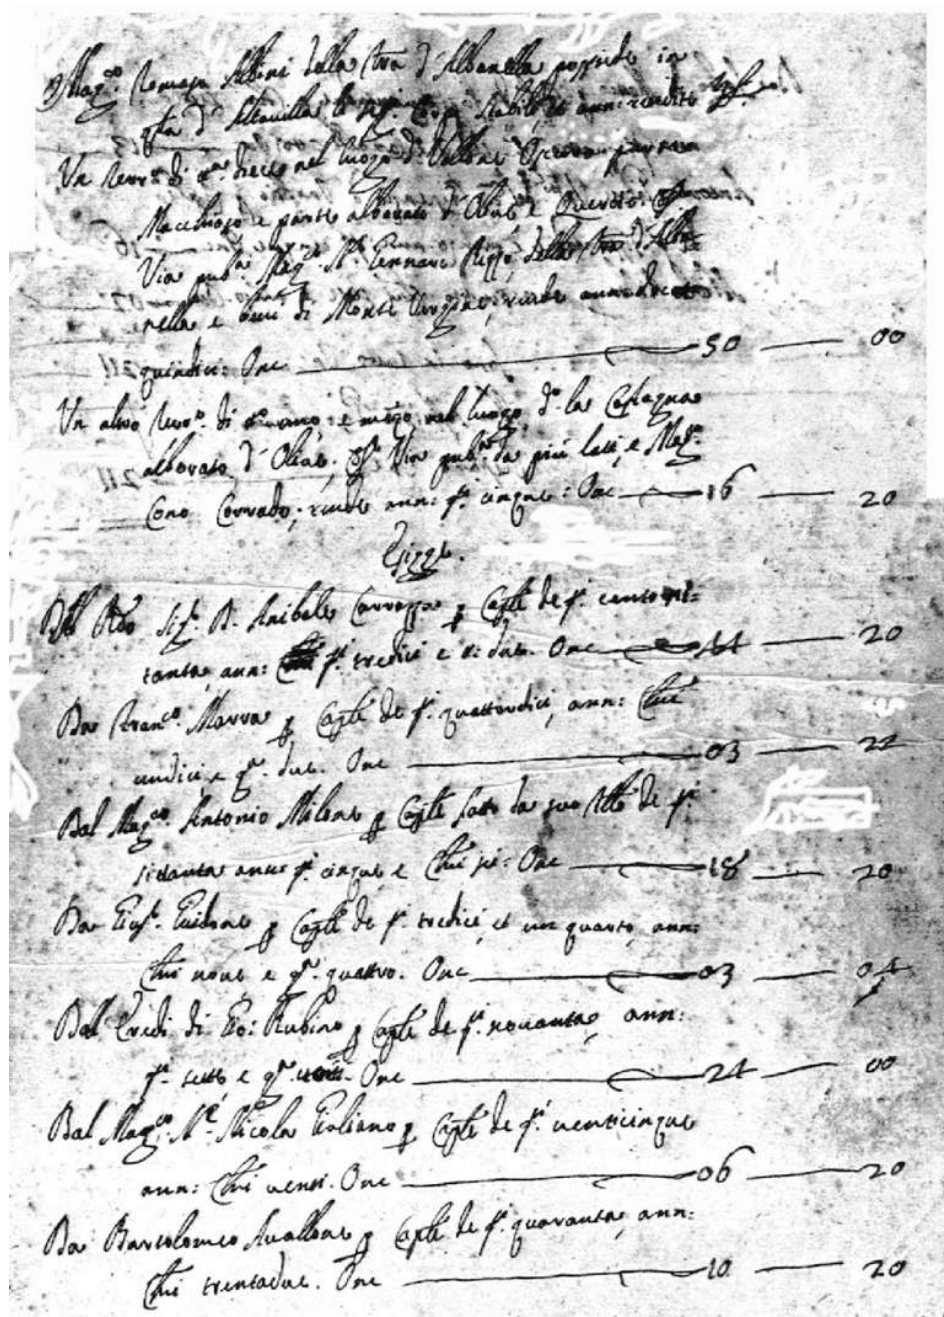 Mag.co Tomaso Albini della Terra d'Albanella possiede in
q.sta d'Altavilla li seg.ti Corpi stabili, et ann: rendite
Un terr.o di t.a dieci nel luogo d.o
Macchioso e parte alborato d'Olive e Querce:
Via pub.a Mag.co N.r Gennaro Rizzo della Terra d'Alba=
nella e beni di Monte Vergine, rende ann: docati
quindici: Onc 50 00
Un altro terr.o di t. uno: e mezo nel luogo d.o la Castagna
alborato d'Olive, Via pub.a da più lati, e Mag.co
Cono Corrado, rende ann: d.i cinque: Onc 16 20
Esigge.
Dal Rdo Sig.r D. Anibale p Cap.le de d.i cento
tanta, ann: d.i tredici e g: due. Onc 44 20
Da Fran.co Marra p Cap.le de d.i quattordici, ann: Clni
undici e g.a due. Onc 03 22
Dal Mag.co Antonio Milone p Cap.le fatto da suo de d.i
sessanta ann: d.i cinque e Clni sei: Onc 18 20
Da Gius.e Guidone p Cap.le de d.i tredici, et un quarto, ann:
Clni nove e g.a quattro. Onc 03 04
Dal Eredi di Gio: Rubino p Cap.le de d.i novanta, ann:
d.i sette e g.a Onc 24 00
Dal Mag.co N.r Nicola Galiano p Cap.le de d.i venticinque
ann: Clni venti. Onc 06 20
Da Bartolomeo Avallone p Cap.le de d.i quaranta, ann:
Clni trentadue. Onc 10 20